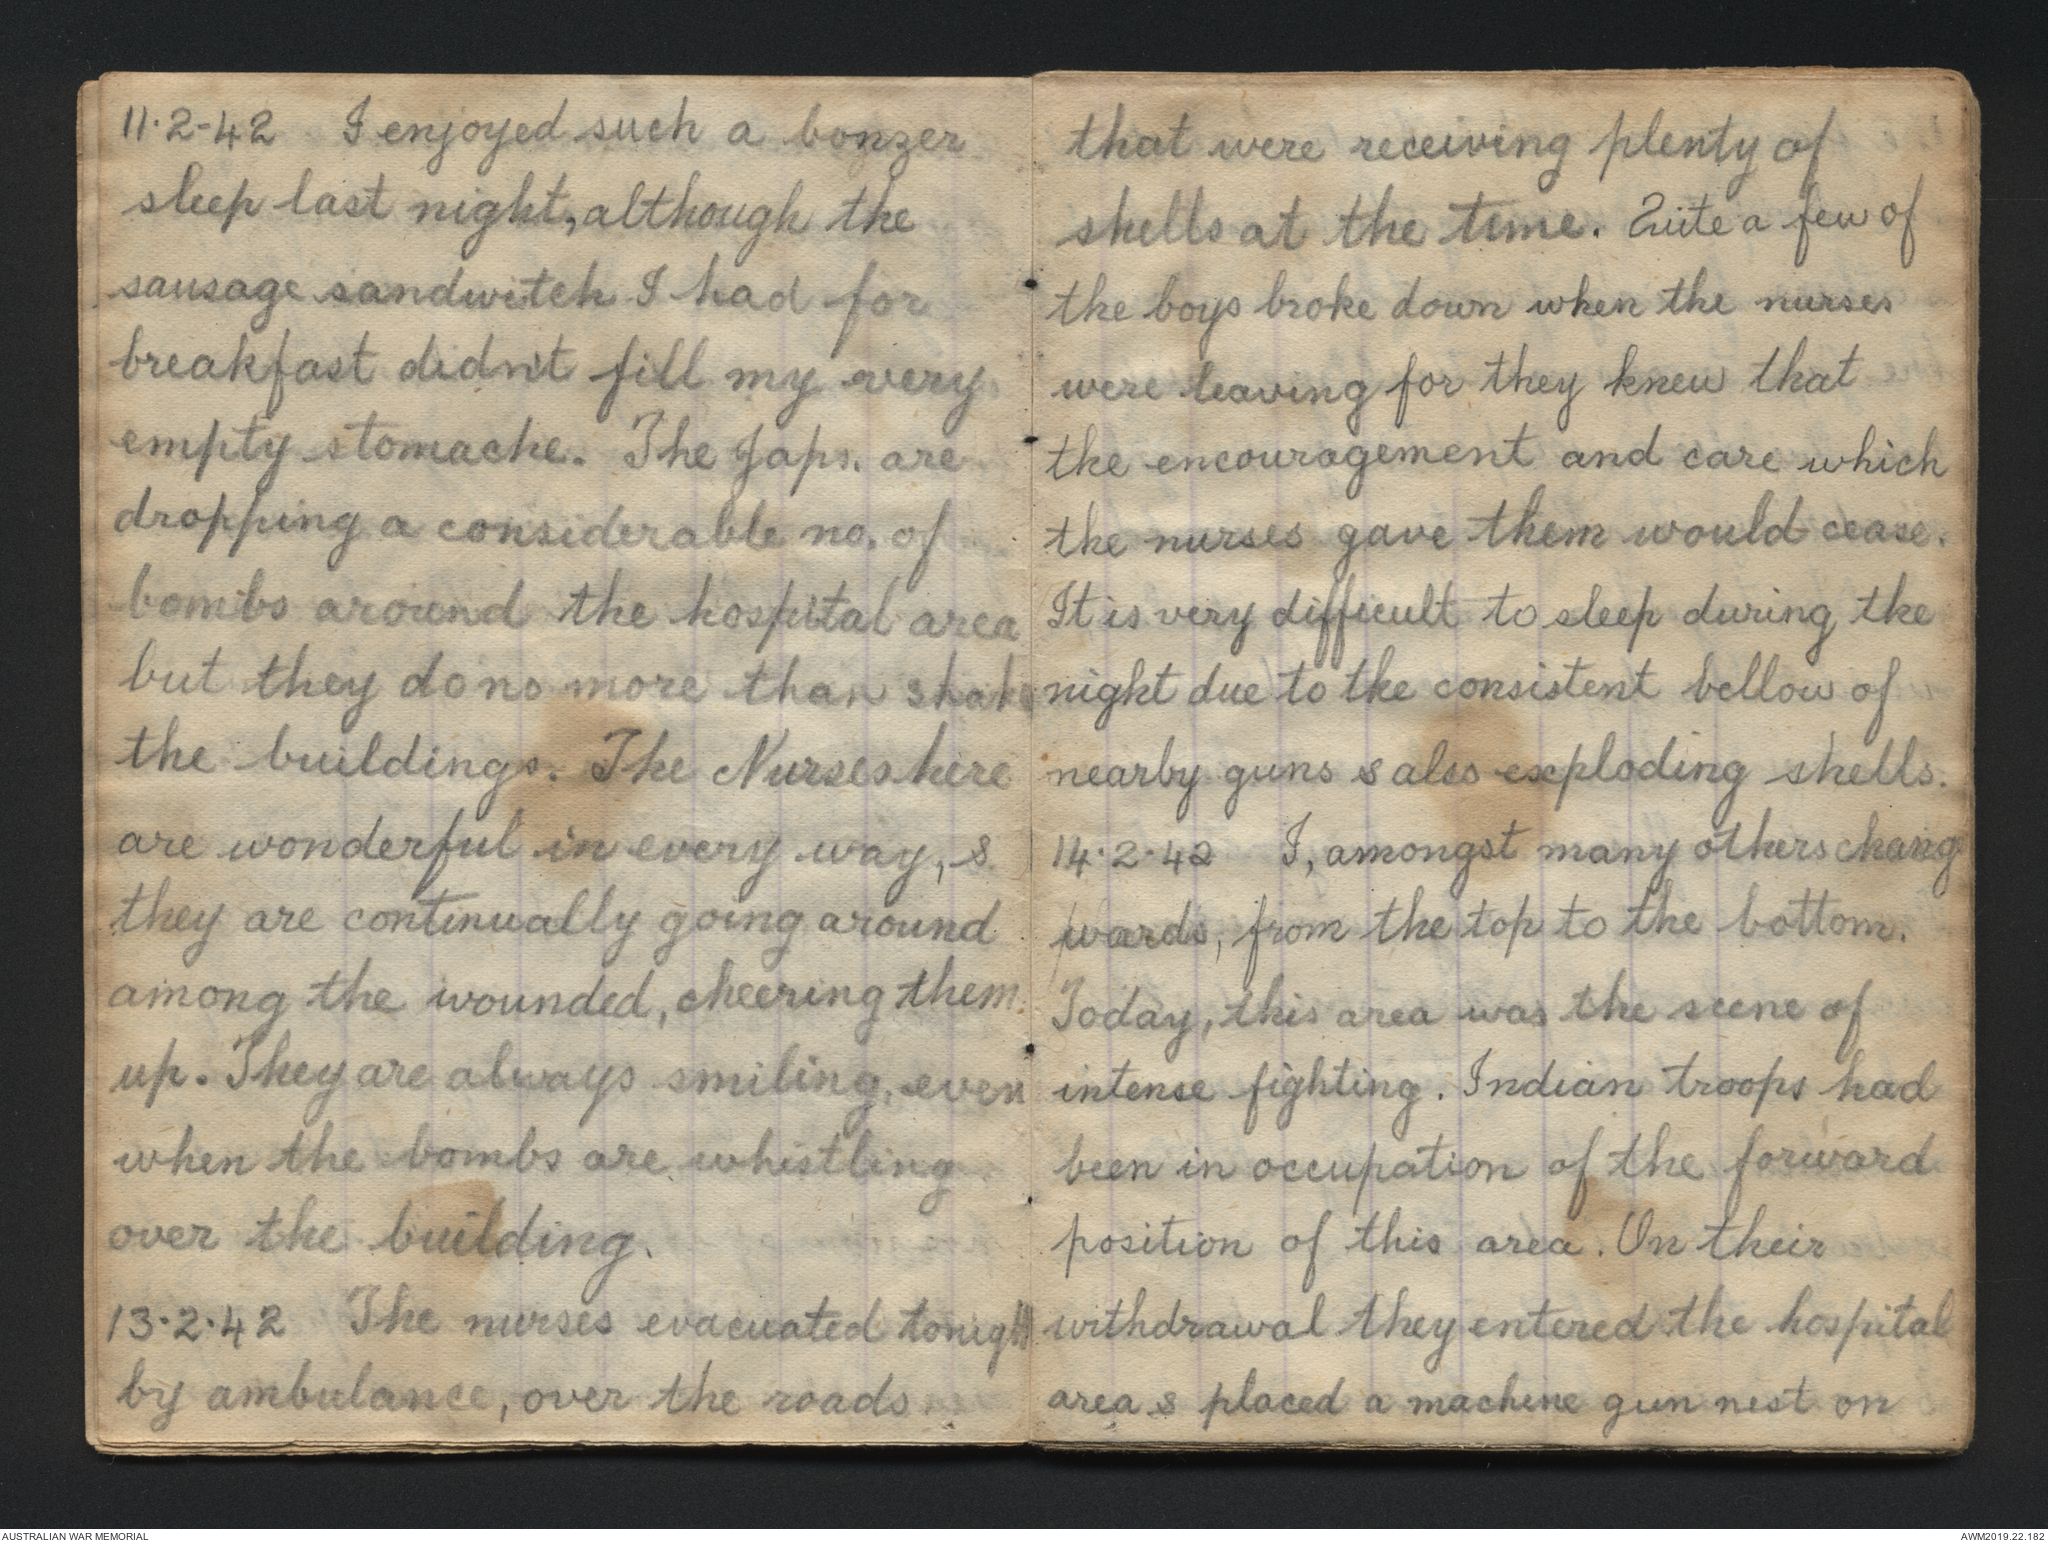 11.2-42 I enjoyed such a bonzer
sleep last night, although the
sausage sandwitch I had for
breakfast didn't fill my very
empty stomache. The Japs. are
dropping a considerable no. of
bombs around the hospital area
but they do no more than shake
the buildings. The Nurses here
are wonderful in every way, &
they are continually going around
among the wounded, cheering them
up. They are always smiling, even
when the bombs are whistling
over the building.
13.2.42 The nurses evacuated tonight
by ambulance, over the roads
that were receiving plenty of
shells at the time. Quite a few of
the boys broke down when the nurses
were leaving for they knew that
the encouragement and care which
the nurses gave them would cease.
It is very difficult to sleep during the
night due to the consistent bellow of
nearby guns & also exploding shells.
14.2.42 I, amongst many others change
wards, from the top to the bottom.
Today, this area was the scene of
intense fighting. Indian troops had
been in occupation of the forward
position of this area. On their
withdrawal they entered the hospital
area & placed a machine gun nest on
AUSTRALIAN WAR MEMORIAL
AWM2019.22.182